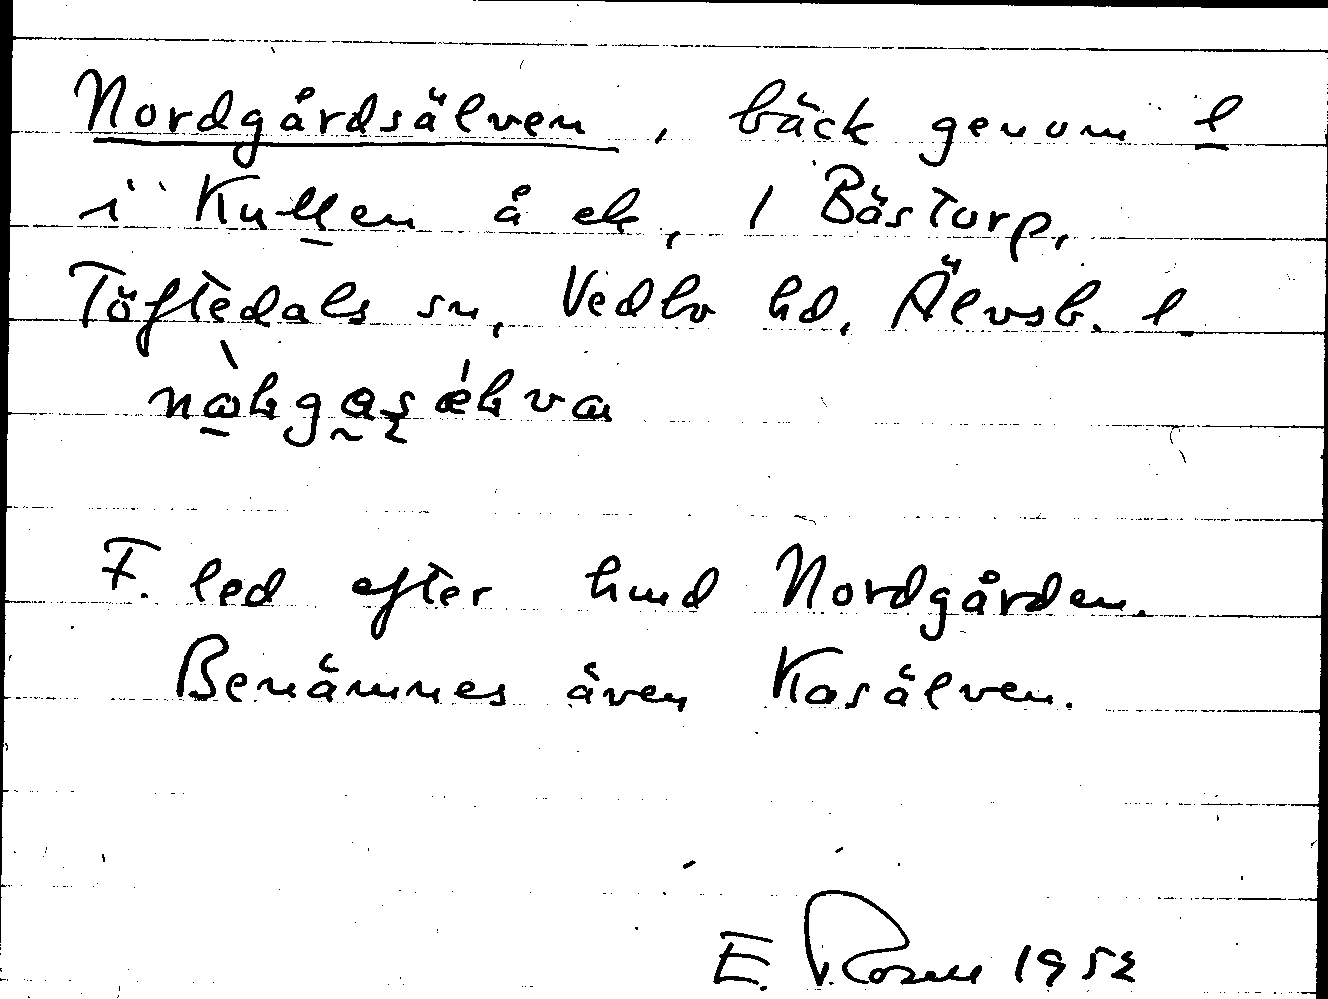 Nordgårdsälven, bäck genom l
i Kullen å ek, 1 Bästorp,
Töftedals sn, Vedbo hd, Älvsb. l.
F. led efter hmd Nordgården.
Benämnes även Kasälven.
E. Rosen 1952